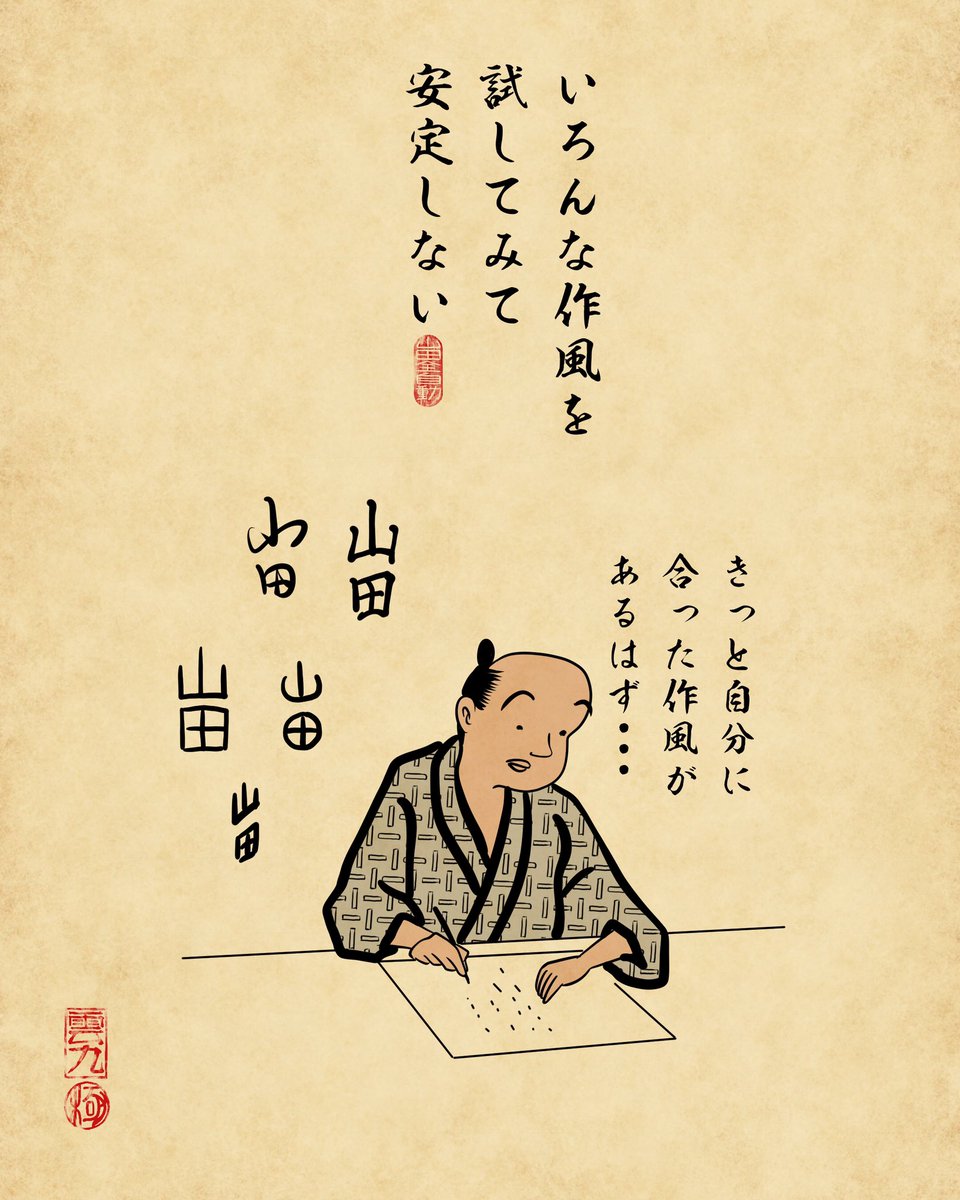 いろんな作風を
試してみて
安定しない
山田
山田
山田
山田
山田
きっと自分に
合った作風が
あるはず・・・